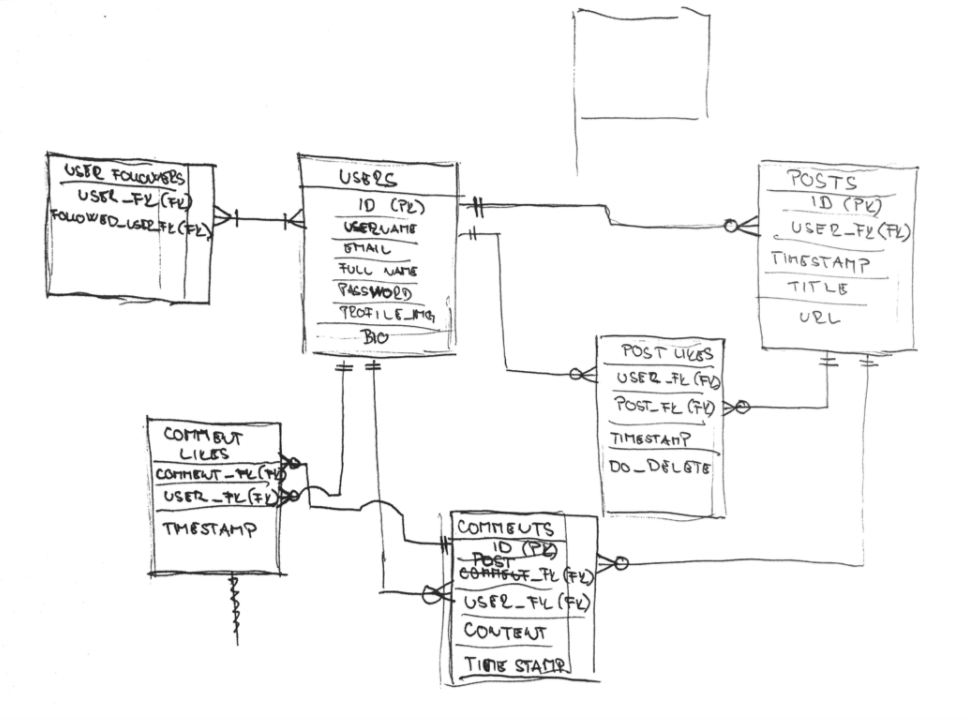 USER FOLLOWERS
USER_FK (FK)
FOLLOWED_USER_FK (FK)
USERS
ID (PK)
USERNAME
EMAIL
FULL NAME
PASSWORD
PROFILE_IMG
BIO
POSTS
ID (PK)
USER_FK (FK)
TIMESTAMP
TITLE
URL
POST LIKES
USER_FK (FK)
POST_FK (FK)
TIMESTAMP
DO_DELETE
COMMENT
LIKES
COMMENT_FK (FK)
USER_FK (FK)
TMESTAMP
COMMENTS
ID (PK)
POST
COMMENT_FK (FK)
USER_FK (FK)
CONTENT
TIME STAMP